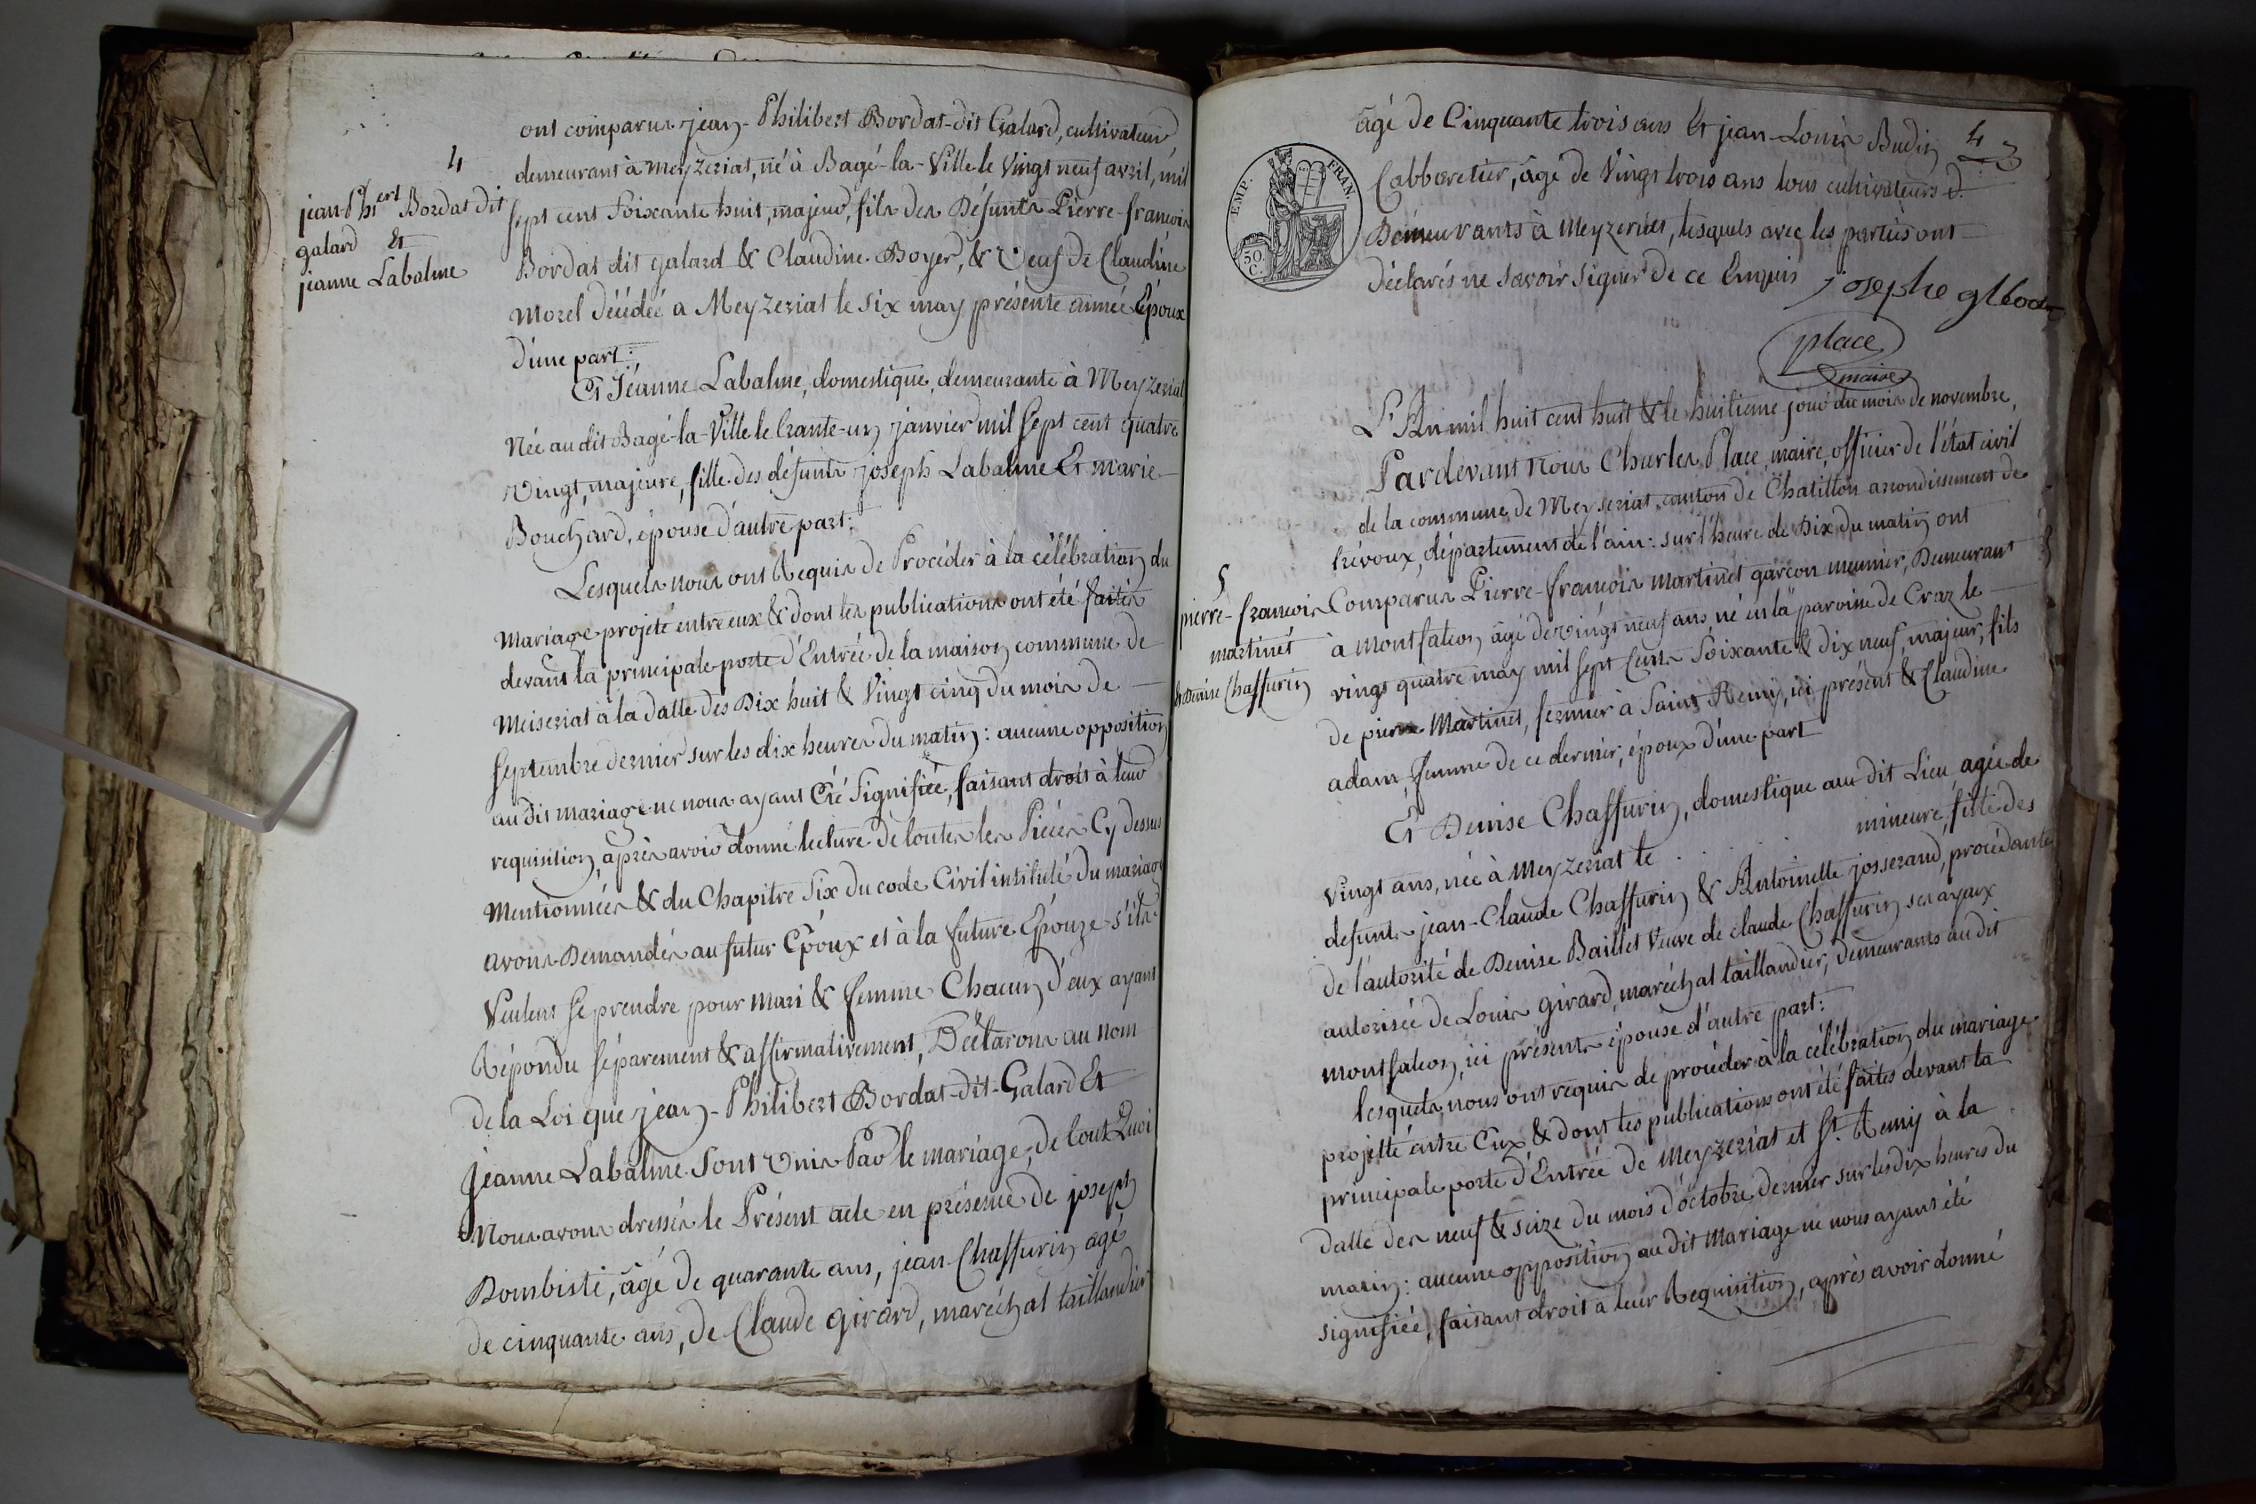 4
jean-Phert Bordat dit
galard Et
jeanne Labalme
ont comparus jean-Philibert Bordat-dit Galard, cultivateur,
demeurant à Meyzeriat, né à Bagé-la-Ville le Vingt neuf avril, mil
sept cent soixante huit, majeur, fils des Défunts Pierre-françois
Bordat dit galard & Claudine Boyer, & Veuf de Claudine
Morel décédée a Meyzeriat le six may présente année Epoux
d'une part:
Et Jeanne Labalme, domestique, demeurante à Meyzeriat
Née au dit Bagé-la-Ville le trante-un janvier mil sept cent quatre
Vingt, majeure, fille des défunts joseph Labalme Et marie
Bouchard, épouse d'autre part:
Lesquels nous ont Requis de Procéder à la célébration du
Mariage projeté entre eux & dont les publications ont été faites
devant la principale porte d'Entrée de la maison commune de
Meiseriat à la datte des Dix huit & Vingt cinq du mois de
septembre dernier sur les dix heures du matin: aucune opposition
au dit mariage ne nous ayant Eté Signifiée, faisant droit à leur
requisition, après avoir donné lecture de toutes les Pièces Cy dessus
Mentionnées & du Chapitre Six du code Civil intitulé Du mariage
avons Demandés au futur Epoux et à la future Epouze s'ils
Veulent se prendre pour Mari & femme Chacun D'eux ayant
Répondu séparement & affirmativement, Déclarons au nom
de la Loi que jean-Philibert Bordat-dit-Galard Et
Jeanne Labalme Sont Unis Par le mariage, de tout Quoi
Nous avons dressés le Présent acte en présence de joseph
Dombiste, âgé de quarante ans, jean Chaffurin agé
de cinquante ans, de Claude girard, maréchal taillandier
4
agé de Cinquante trois ans Et jean-Louis Budin
EMP. FRAN.
50.
C.
Cabbaretier, âgé de Vingt trois ans tous cultivateurs &
Demeurants à Meyzeriat, lesquels avec les parties ont
Déclarés ne savoir signer de ce Enquis
josephe
place
maire
L'An mil huit cent huit & le huitieme jour du mois de novembre,
Pardevant Nous Charles Place, maire, officier de l'état civil
de la commune de Meyseriat, canton de Chatillon arrondissement de
trevoux, département de l'ain: sur l'heure de Dix du matin ont
5
pierre-francois
martinet
& Denise Chaffurin
Comparus Pierre-francois martinet garcon meunier, Demeurant
à Montfalcon, âgé de vingt neuf ans, né en la paroisse de Craz le
vingt quatre may mil sept cent Soixante & dix neuf, majeur, fils
de pierre Martinet, fermier à Saint Remy, ici présent & Claudine
adam, femme de ce dernier; époux d'une part
Et Denise Chaffurin, domestique au dit Lieu agée de
Vingt ans, née à Meyzeriat le mineure, fille des
defunts jean-Claude Chaffurin & Antoinette josserand, procédante
de l'autorité de Denise Baillet Veuve de claude Chaffurin ses ayaux
autorisée de Louis girard, maréchal taillandier, demeurants au dit
montfalcon, ici présents épouse d'autre part:
lesquels nous ont requis de procéder à la célébration du mariage
projetté entre Eux & dont les publications ont été faites devant la
principale porte d'Entrée de Meyzeriat et St. Remy à la
datte des neuf & seize du mois d'octobre dernier sur les dix heures du
matin: aucune opposition au dit Mariage ne nous ayant été
signifiée, faisant droit à leur Requisition, après avoir donné